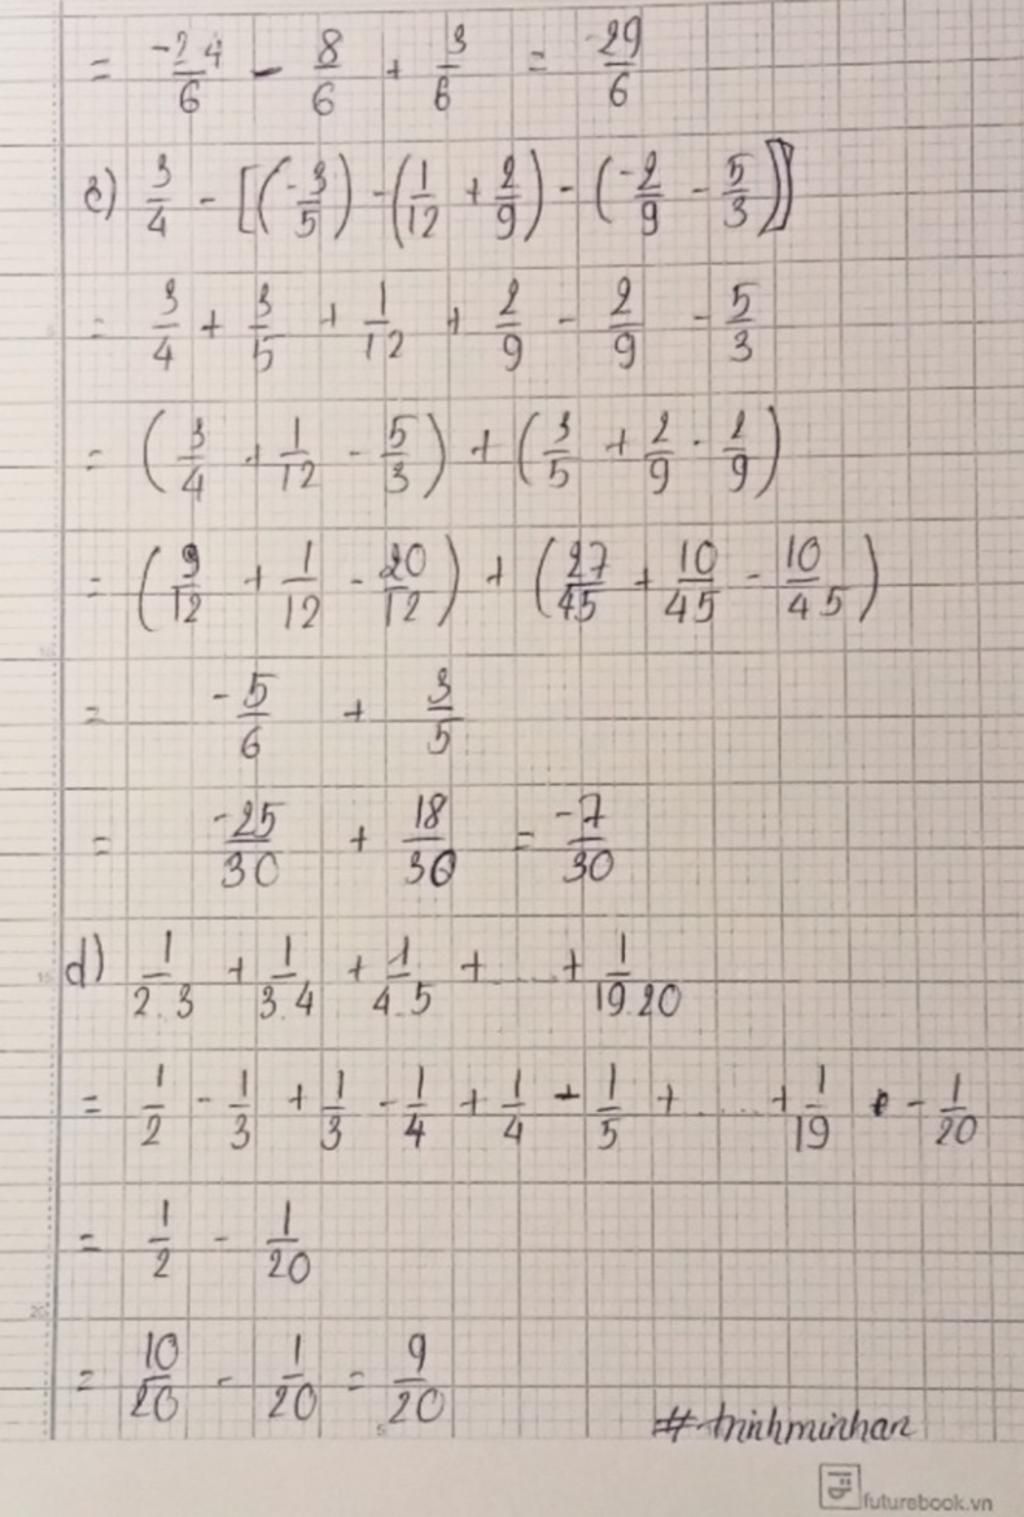 = -24/6 - 8/6 + 3/6 = -29/6
c) 3/4 - [(-3/5) - (1/12 + 2/9) - (-2/9 - 5/3)]
= 3/4 + 3/5 + 1/12 + 2/9 - 2/9 - 5/3
= (3/4 + 1/12 - 5/3) + (3/5 + 2/9 - 2/9)
= (9/12 + 1/12 - 20/12) + (27/45 + 10/45 - 10/45)
= -5/6 + 3/5
= -25/30 + 18/30 = -7/30
d) 1/2.3 + 1/3.4 + 1/4.5 + ..... + 1/19.20
= 1/2 - 1/3 + 1/3 - 1/4 + 1/4 - 1/5 + ..... + 1/19 - 1/20
= 1/2 - 1/20
= 10/20 - 1/20 = 9/20
#trinhminhan
futurebook.vn